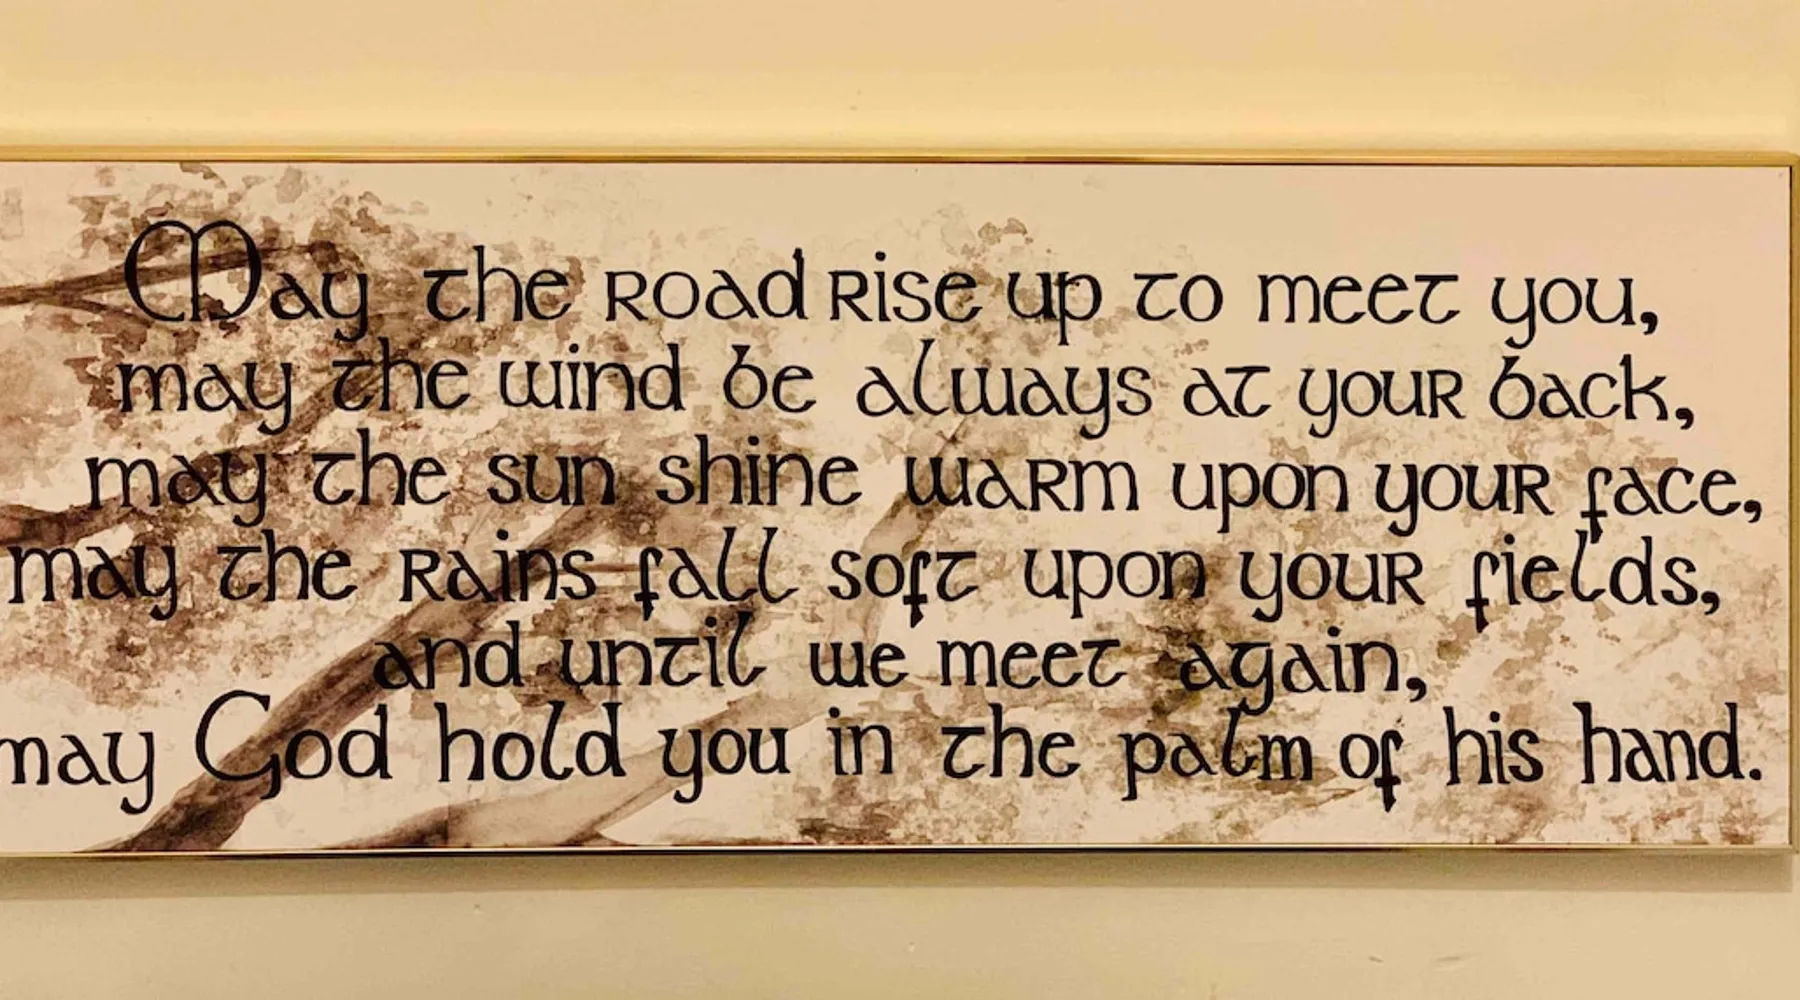 May the road rise up to meet you,
may the wind be always at your back,
may the sun shine warm upon your face,
may the rains fall soft upon your fields,
and until we meet again,
may God hold you in the palm of his hand.